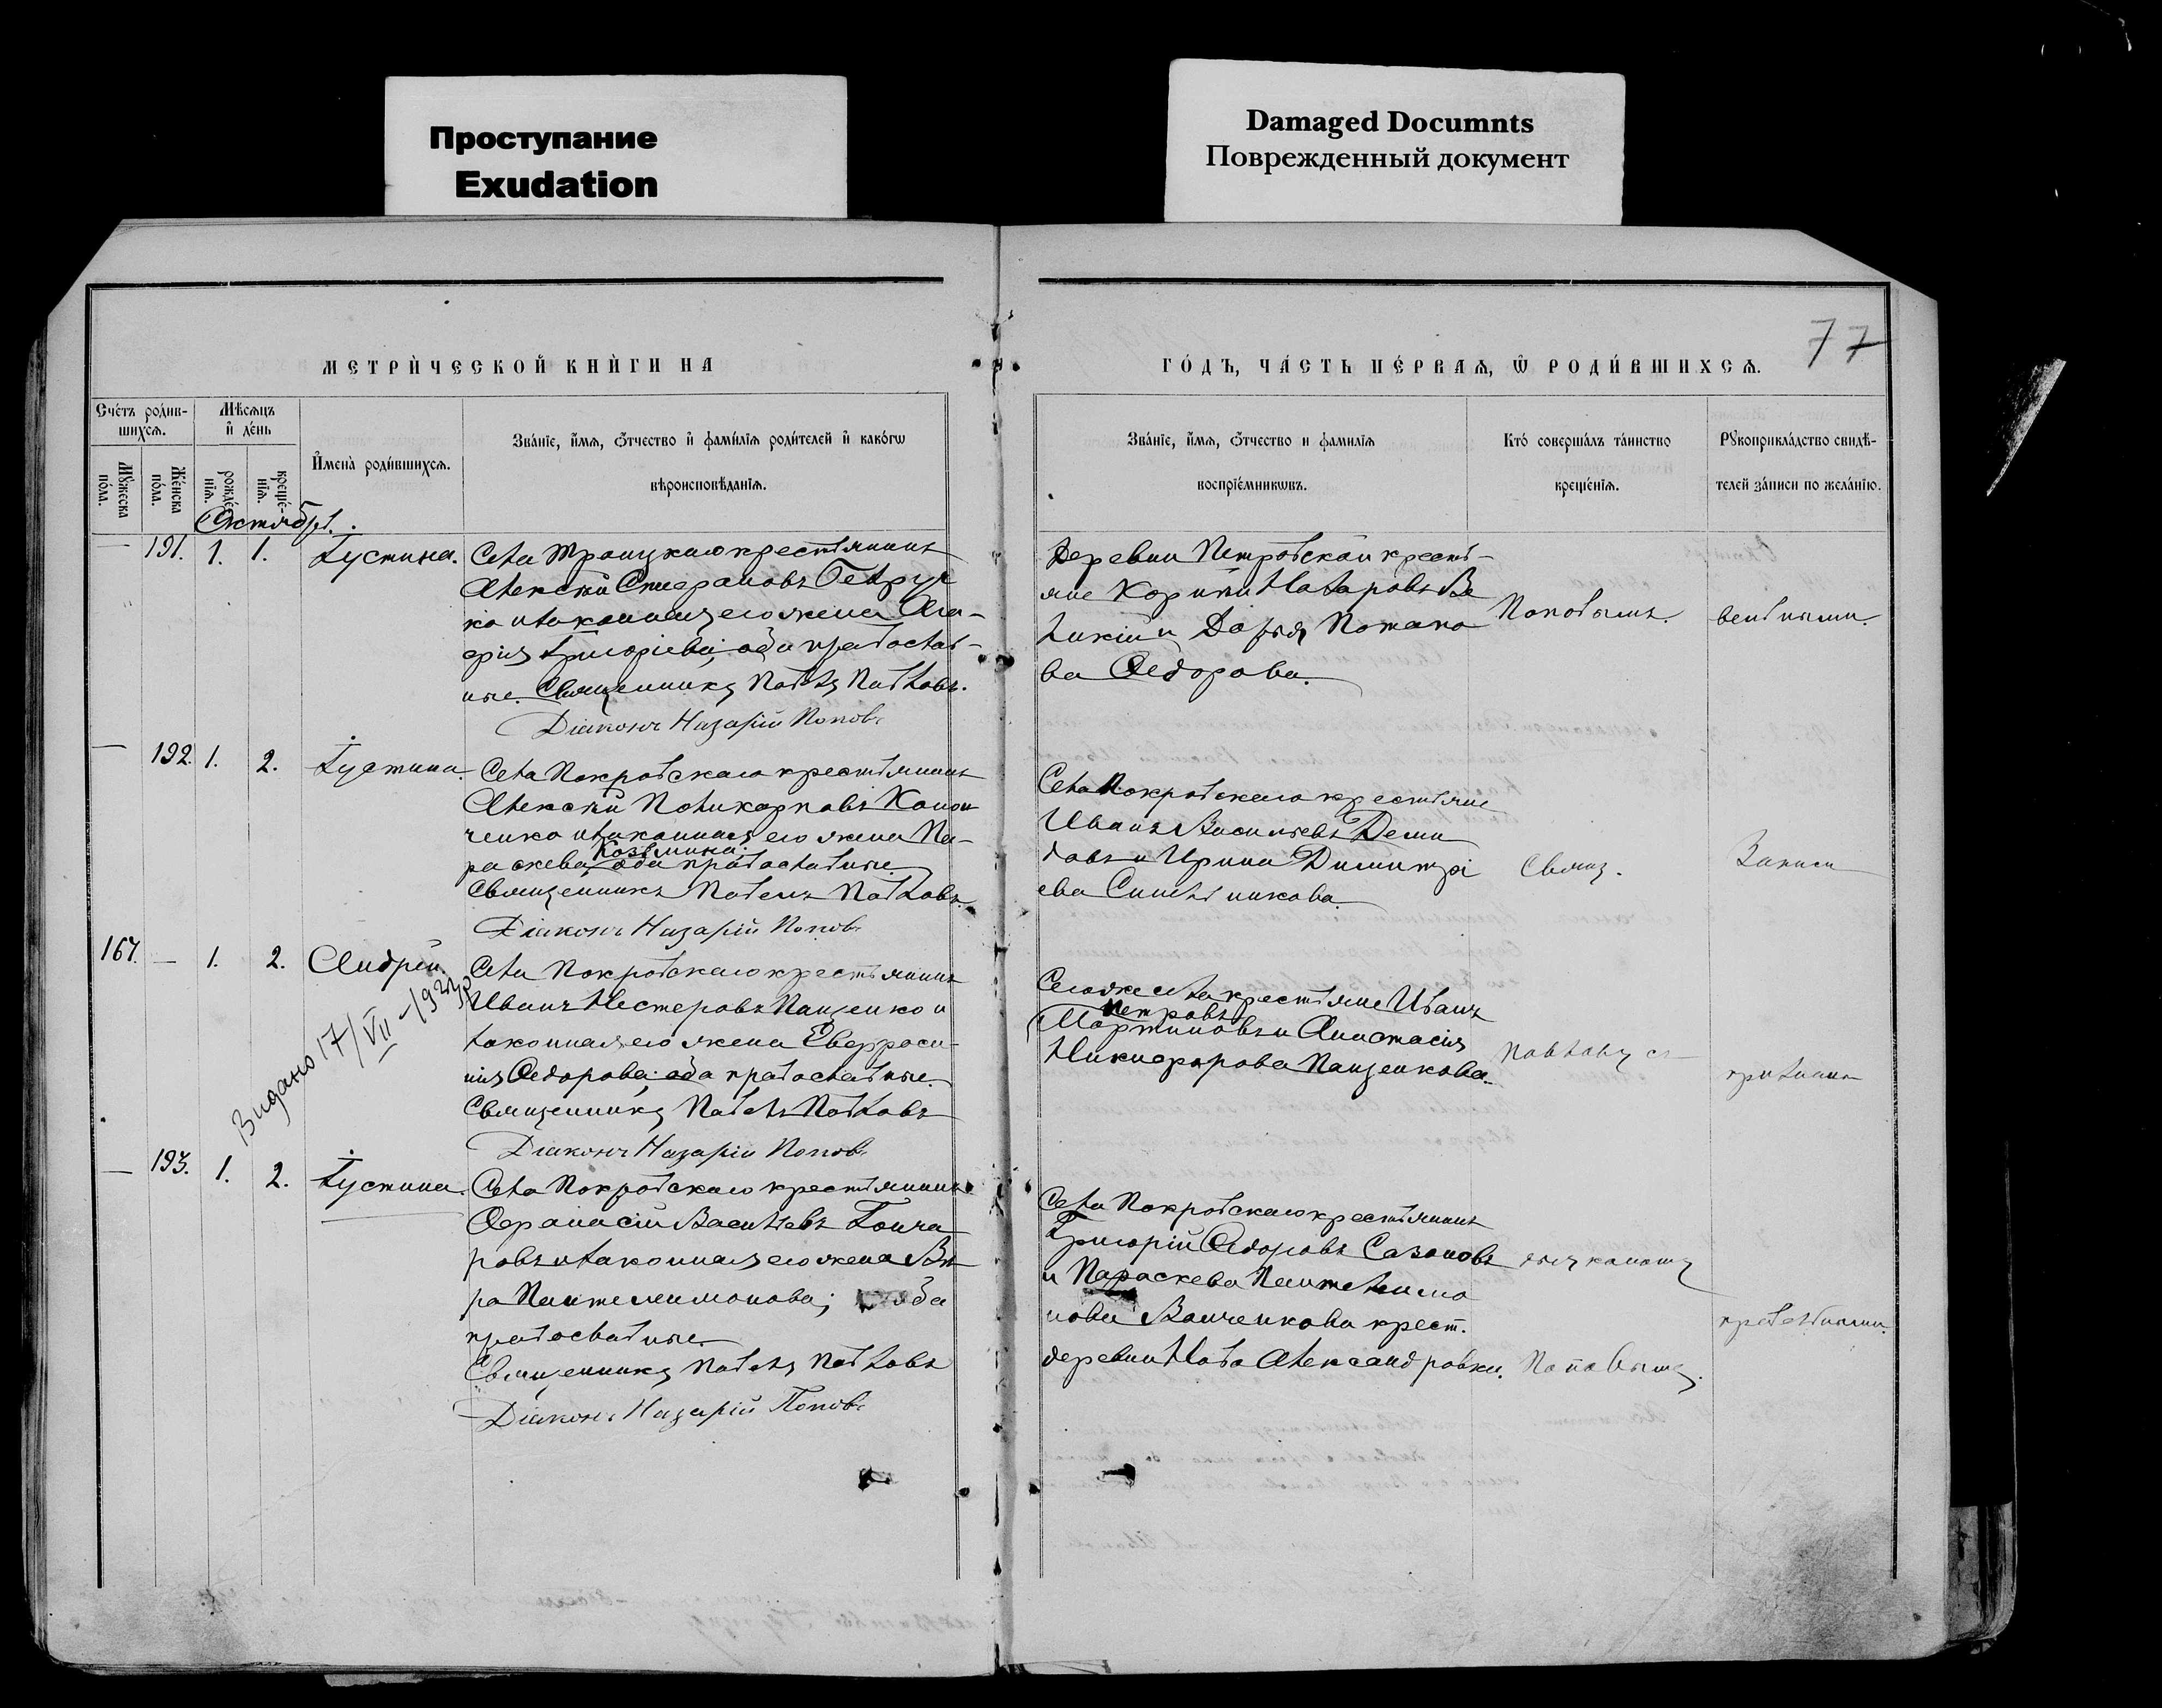 Проступание
Exudation
Damaged Documnts
Поврежденный документ
77
МЕТРИ́ЧЕСКОЙ КНИ́ГИ НА
ГО́ДЪ, ЧА́СТЬ ПЕ́РВАѦ, Ѡ РОДИ́ВШИХСѦ.
Сче́тъ роди́в-
шихсѧ.
Мꙋ́жеска по́ла.
Же́нска по́ла.
Мѣ́сѧцъ
и҆ де́нь
рожде́нїѧ.
креще́нїѧ.
И҆мена̀ роди́вшихсѧ.
Зва́нїе, и҆́мѧ, ѻ҆́тчество и҆ фами́лїѧ роди́телей и҆ како́гѡ
вѣроисповѣ́данїѧ.
Зва́нїе, и҆́мѧ, ѻ҆́тчество и фамилїѧ
воспрїе́мникѡвъ.
Кто̀ соверша́лъ та́инство
креще́нїѧ.
Рꙋкоприкла́дство свидѣ́-
телей за́писи по жела́нїю.
Октябрь.
— 191. 1. 1. Іустина.
Села Троицкаго крестьянинъ
Алексѣй Стефановъ Гаврул
ко и законная его жена Ага-
фія Григоріева; оба православ-
ные. Священникъ Павелъ Павловъ.
Діаконъ Назарій Поповъ
Деревни Петровской кресть-
яне Корнилій Назаровъ Ве
ликій и Дарья Потапо
ва Ѳедорова.
Поповымъ.
— 192. 1. 2. Іустина.
Села Покровскаго крестьянинъ
Алексѣй Поликарповъ Конон
ченко и законная его жена Па-
раскева Козьмина; оба православные.
Священникъ Павелъ Павловъ.
Діаконъ Назарій Поповъ
Села Покровскаго крестьяне
Иванъ Васильевъ Деми
довъ и Ирина Димитрі
ева Синельникова.
Свящ.
Записи
167. — 1. 2. Андрей.
Видано 17/VII-1922 р
Села Покровскаго крестьянинъ
Иванъ Нестеровъ Пащенко и
законная его жена Евфроси-
нія Ѳедорова; оба православные.
Священникъ Павелъ Павловъ
Діаконъ Назарій Поповъ
Того же села крестьяне Иванъ
Петровъ
Мартиновъ и Анастасія
Никифорова Пащенкова.
Павловъ съ
— 193. 1. 2. Іустина.
Села Покровскаго крестьянинъ
Аѳанасій Васильевъ Гонча
ровъ и законная его жена Вѣ
ра Пантелеимонова; оба
православные.
Священникъ Павелъ Павловъ
Діаконъ Назарій Поповъ
Села Покровскаго крестьянинъ
Григорій Ѳедоровъ Сазоновъ
и Параскева Пантелеимо
нова Ванченкова крест.
деревни Ново Александровки.
Поповымъ.